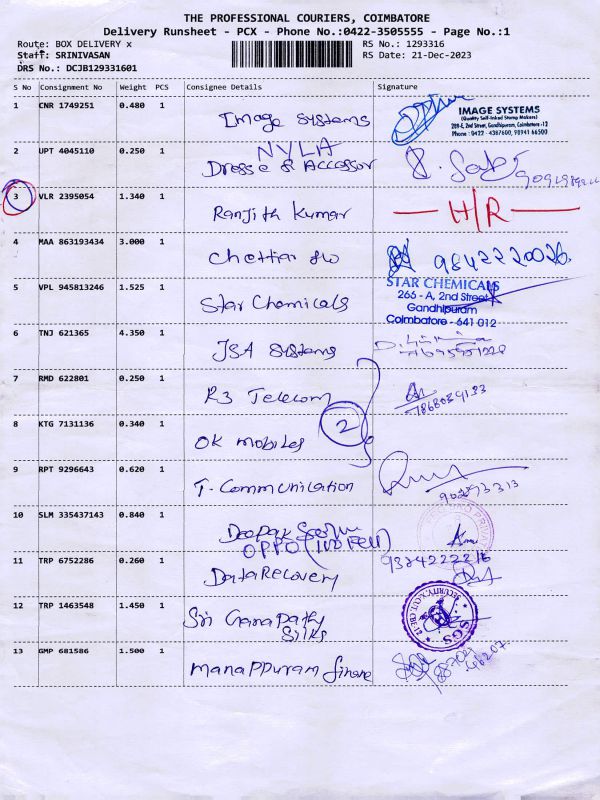 THE PROFESSIONAL COURIERS, COIMBATORE
Delivery Runsheet - PCX - Phone No.:0422-3505555 - Page No.:1
Route: BOX DELIVERY x
RS No.: 1293316
Staff: SRINIVASAN
RS Date: 21-Dec-2023
DRS No.: DCJB129331601
S No Consignment No Weight PCS Consignee Details Signature
1 CNR 1749251 0.480 1 Image Systems
IMAGE SYSTEMS
(Quality Self-Inked Stamp Makers)
209-E, 2nd Street, Gandhipuram, Coimbatore -12
Phone : 0422 - 4387600, 90941 66500
NYLA
2 UPT 4045110 0.250 1 Dresse & Accessor
3 VLR 2395054 1.340 1 Ranjith Kumar H/R
4 MAA 863193434 3.000 1 Chettiar 9842220026
5 VPL 945813246 1.525 1 Star Chemicals
STAR CHEMICALS
265 - A, 2nd Street
Gandhipuram
Coimbatore - 641 012
6 TNJ 621365 4.350 1 JSA Systems
7 RMD 622801 0.250 1 R3 Telecom
2
8 KTG 7131136 0.340 1 OK mobiles
9 RPT 9296643 0.620 1 T. Communication
10 SLM 335437143 0.840 1 Deepak
OPPO
11 TRP 6752286 0.260 1 Data Recovery
12 TRP 1463548 1.450 1 Sri Ganapathy
Silks
SGS
13 GMP 681586 1.500 1 manappuram